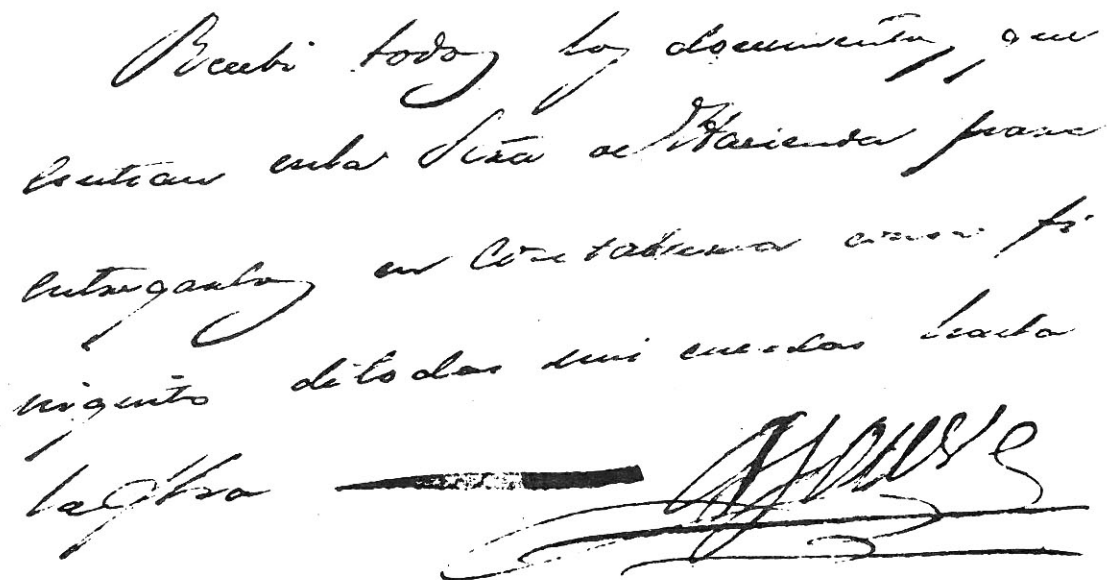 Recibi todos los documentos, que
en la Sria de Hacienda para
entregarlos en Contaduria como fi
niquito de todas mis cuentas hasta
la fha